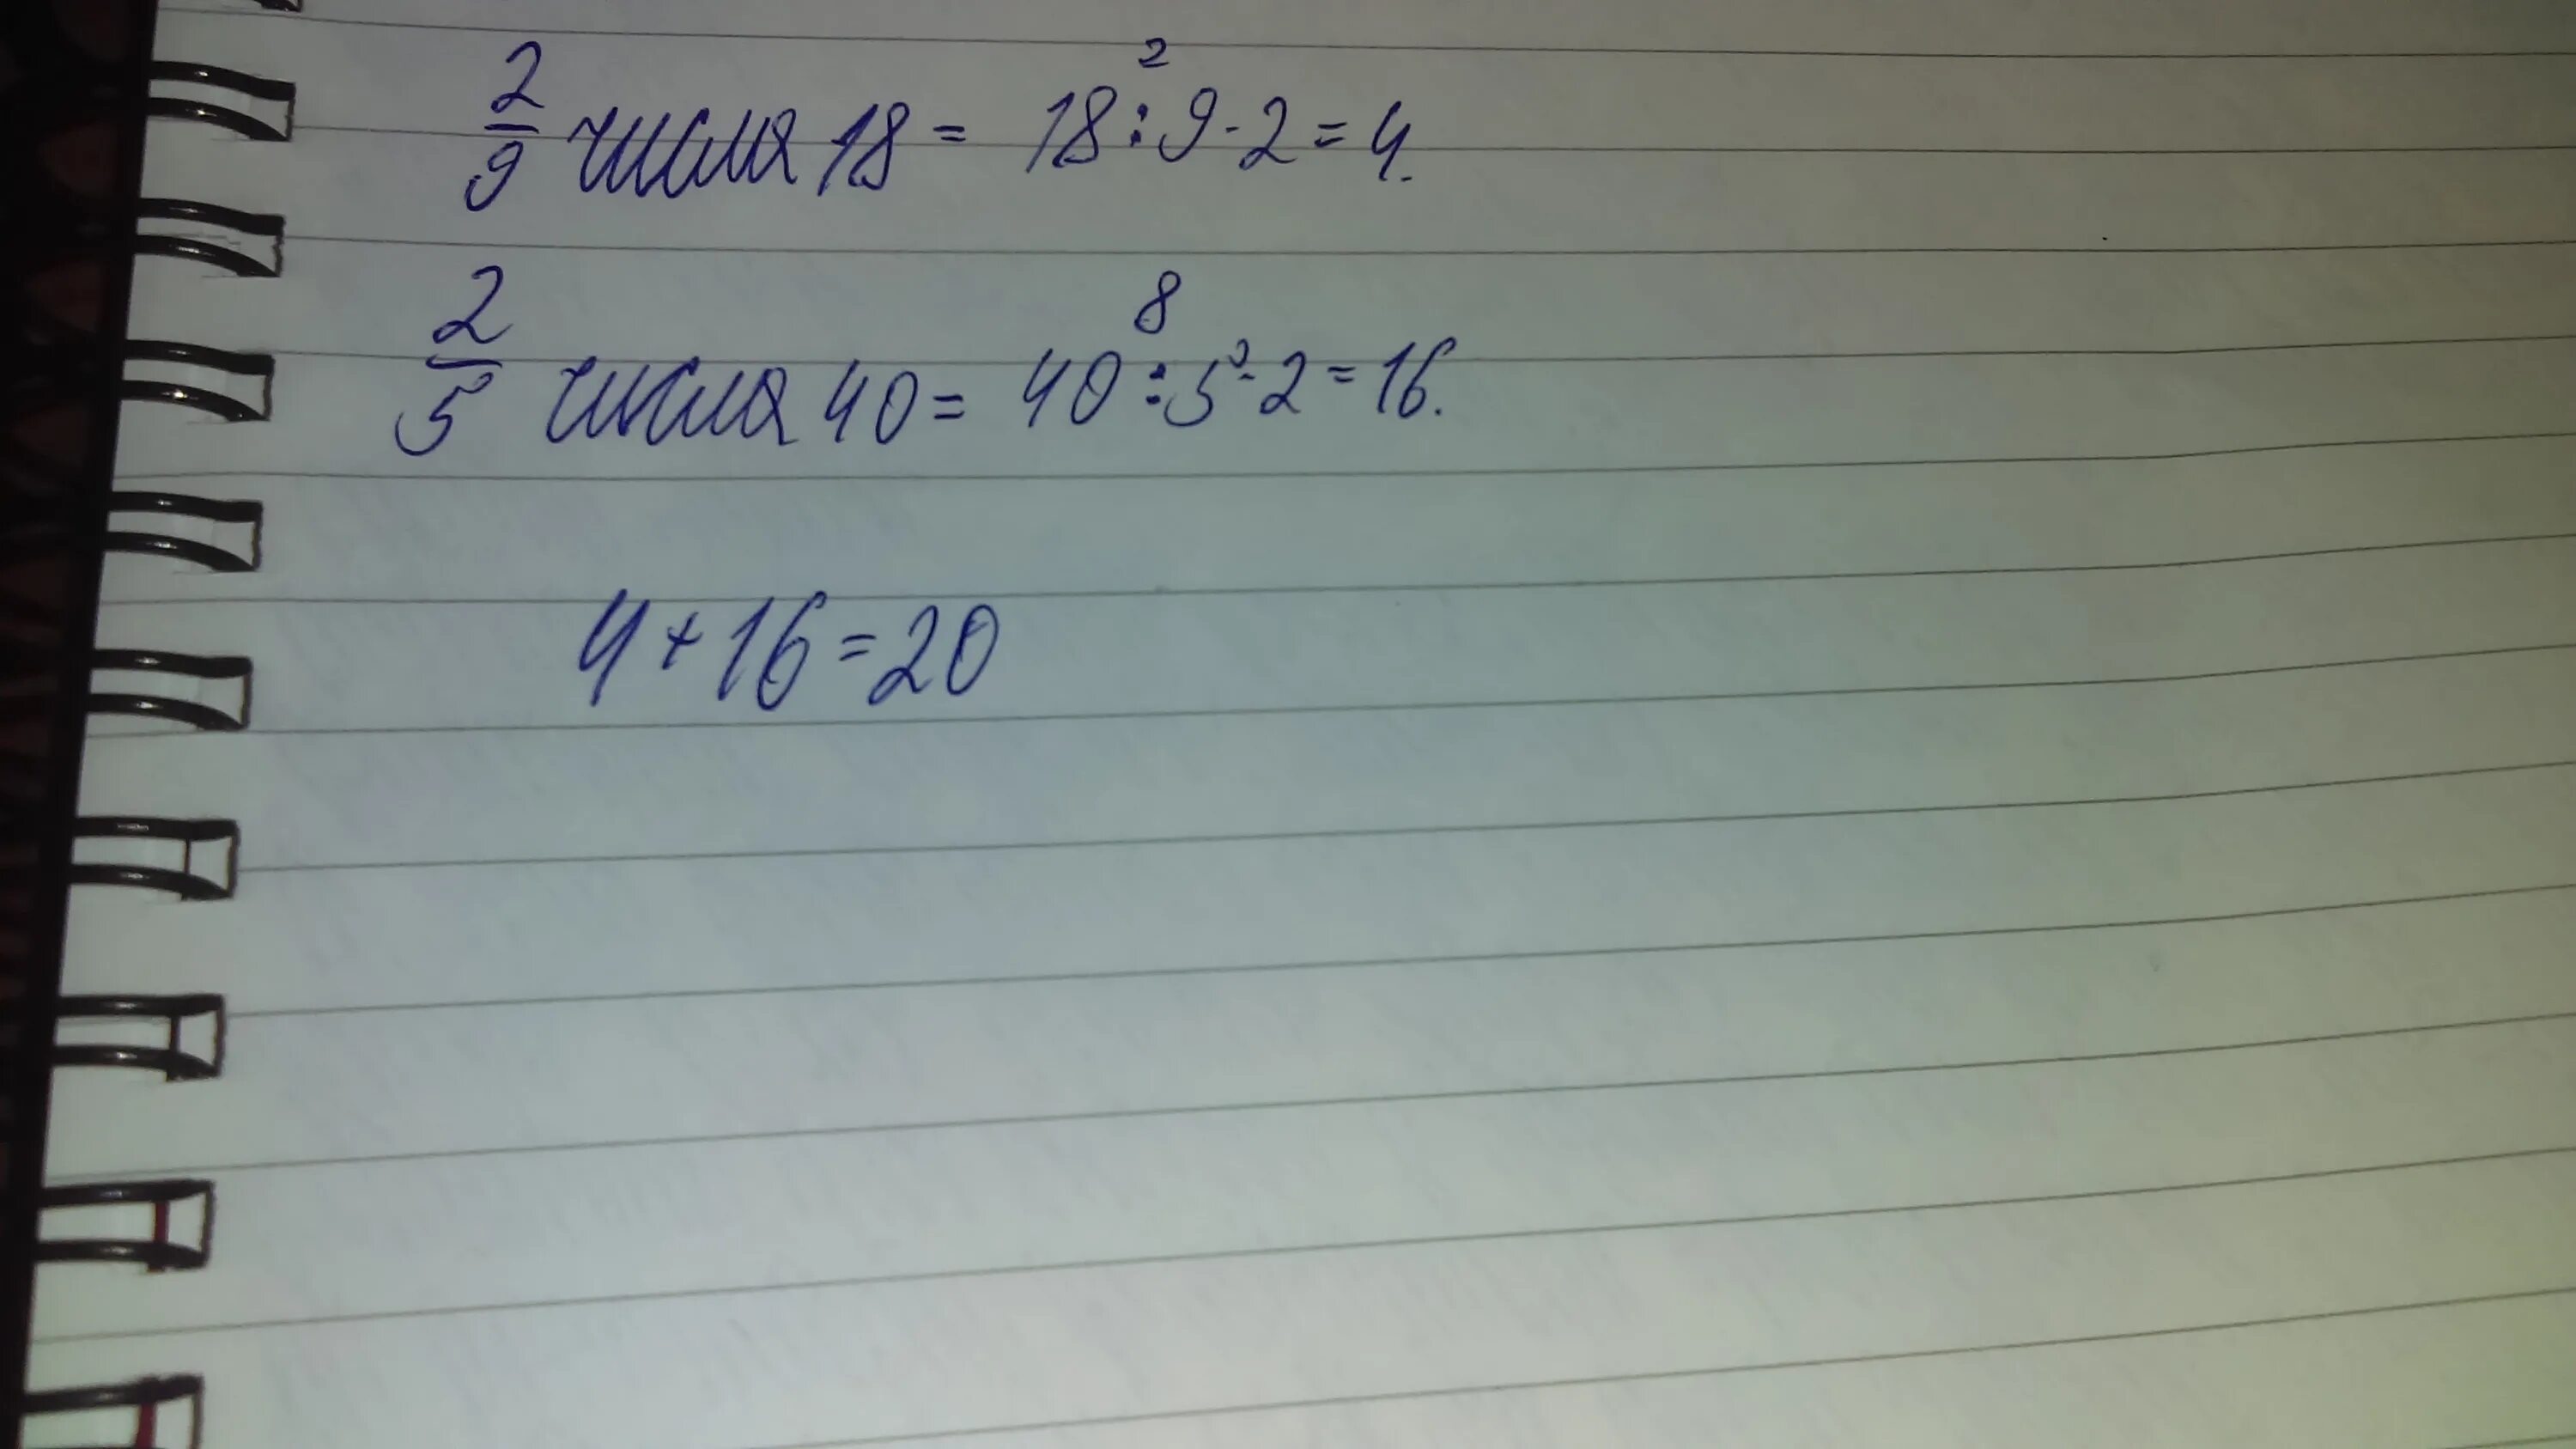 2
2/9 числа 18 = 18 : 9 · 2 = 4.
8
2/5 числа 40 = 40 : 5 · 2 = 16.
4 + 16 = 20